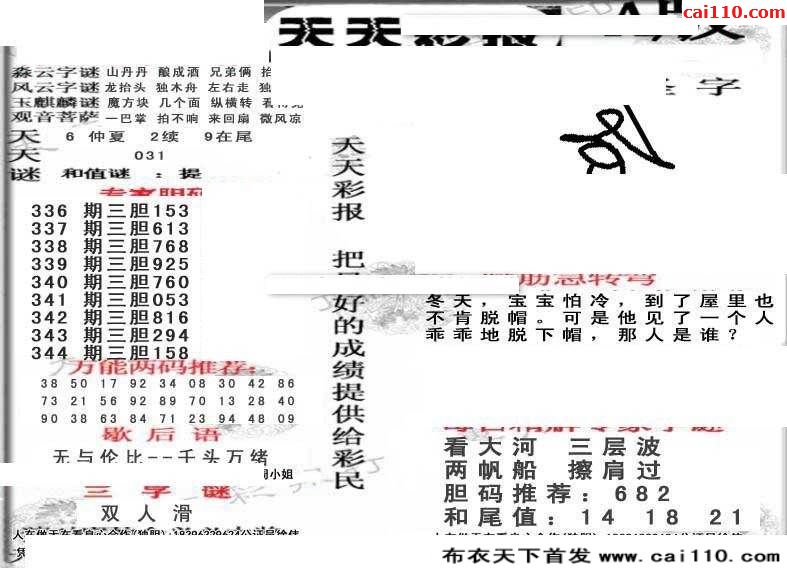 cai110.com
天天彩报
字
森云字谜 山丹丹 酿成酒 兄弟俩
风云字谜 龙抬头 独木舟 左右走
玉麒麟谜 魔方块 几个面 纵横转
观音菩萨 一巴掌 拍不响 来回扇 微风凉
天 6 仲夏 2续 9在尾
天 031
谜 和值谜 : 提
336 期三胆153
337 期三胆613
338 期三胆768
339 期三胆925
340 期三胆760
341 期三胆053
342 期三胆816
343 期三胆294
344 期三胆158
万能两码推荐:
38 50 17 92 34 08 30 42 86
73 21 56 92 89 70 13 28 40
90 38 63 84 71 23 94 48 09
歇后语
无与伦比--千头万绪
小姐
三字谜
双人滑
天天彩报 把最好的成绩提供给彩民
脑筋急转弯
冬天，宝宝怕冷，到了屋里也
不肯脱帽。可是他见了一个人
乖乖地脱下帽，那人是谁？
看大河 三层波
两帆船 擦肩过
胆码推荐: 682
和尾值: 14 18 21
布衣天下首发 www.cai110.com